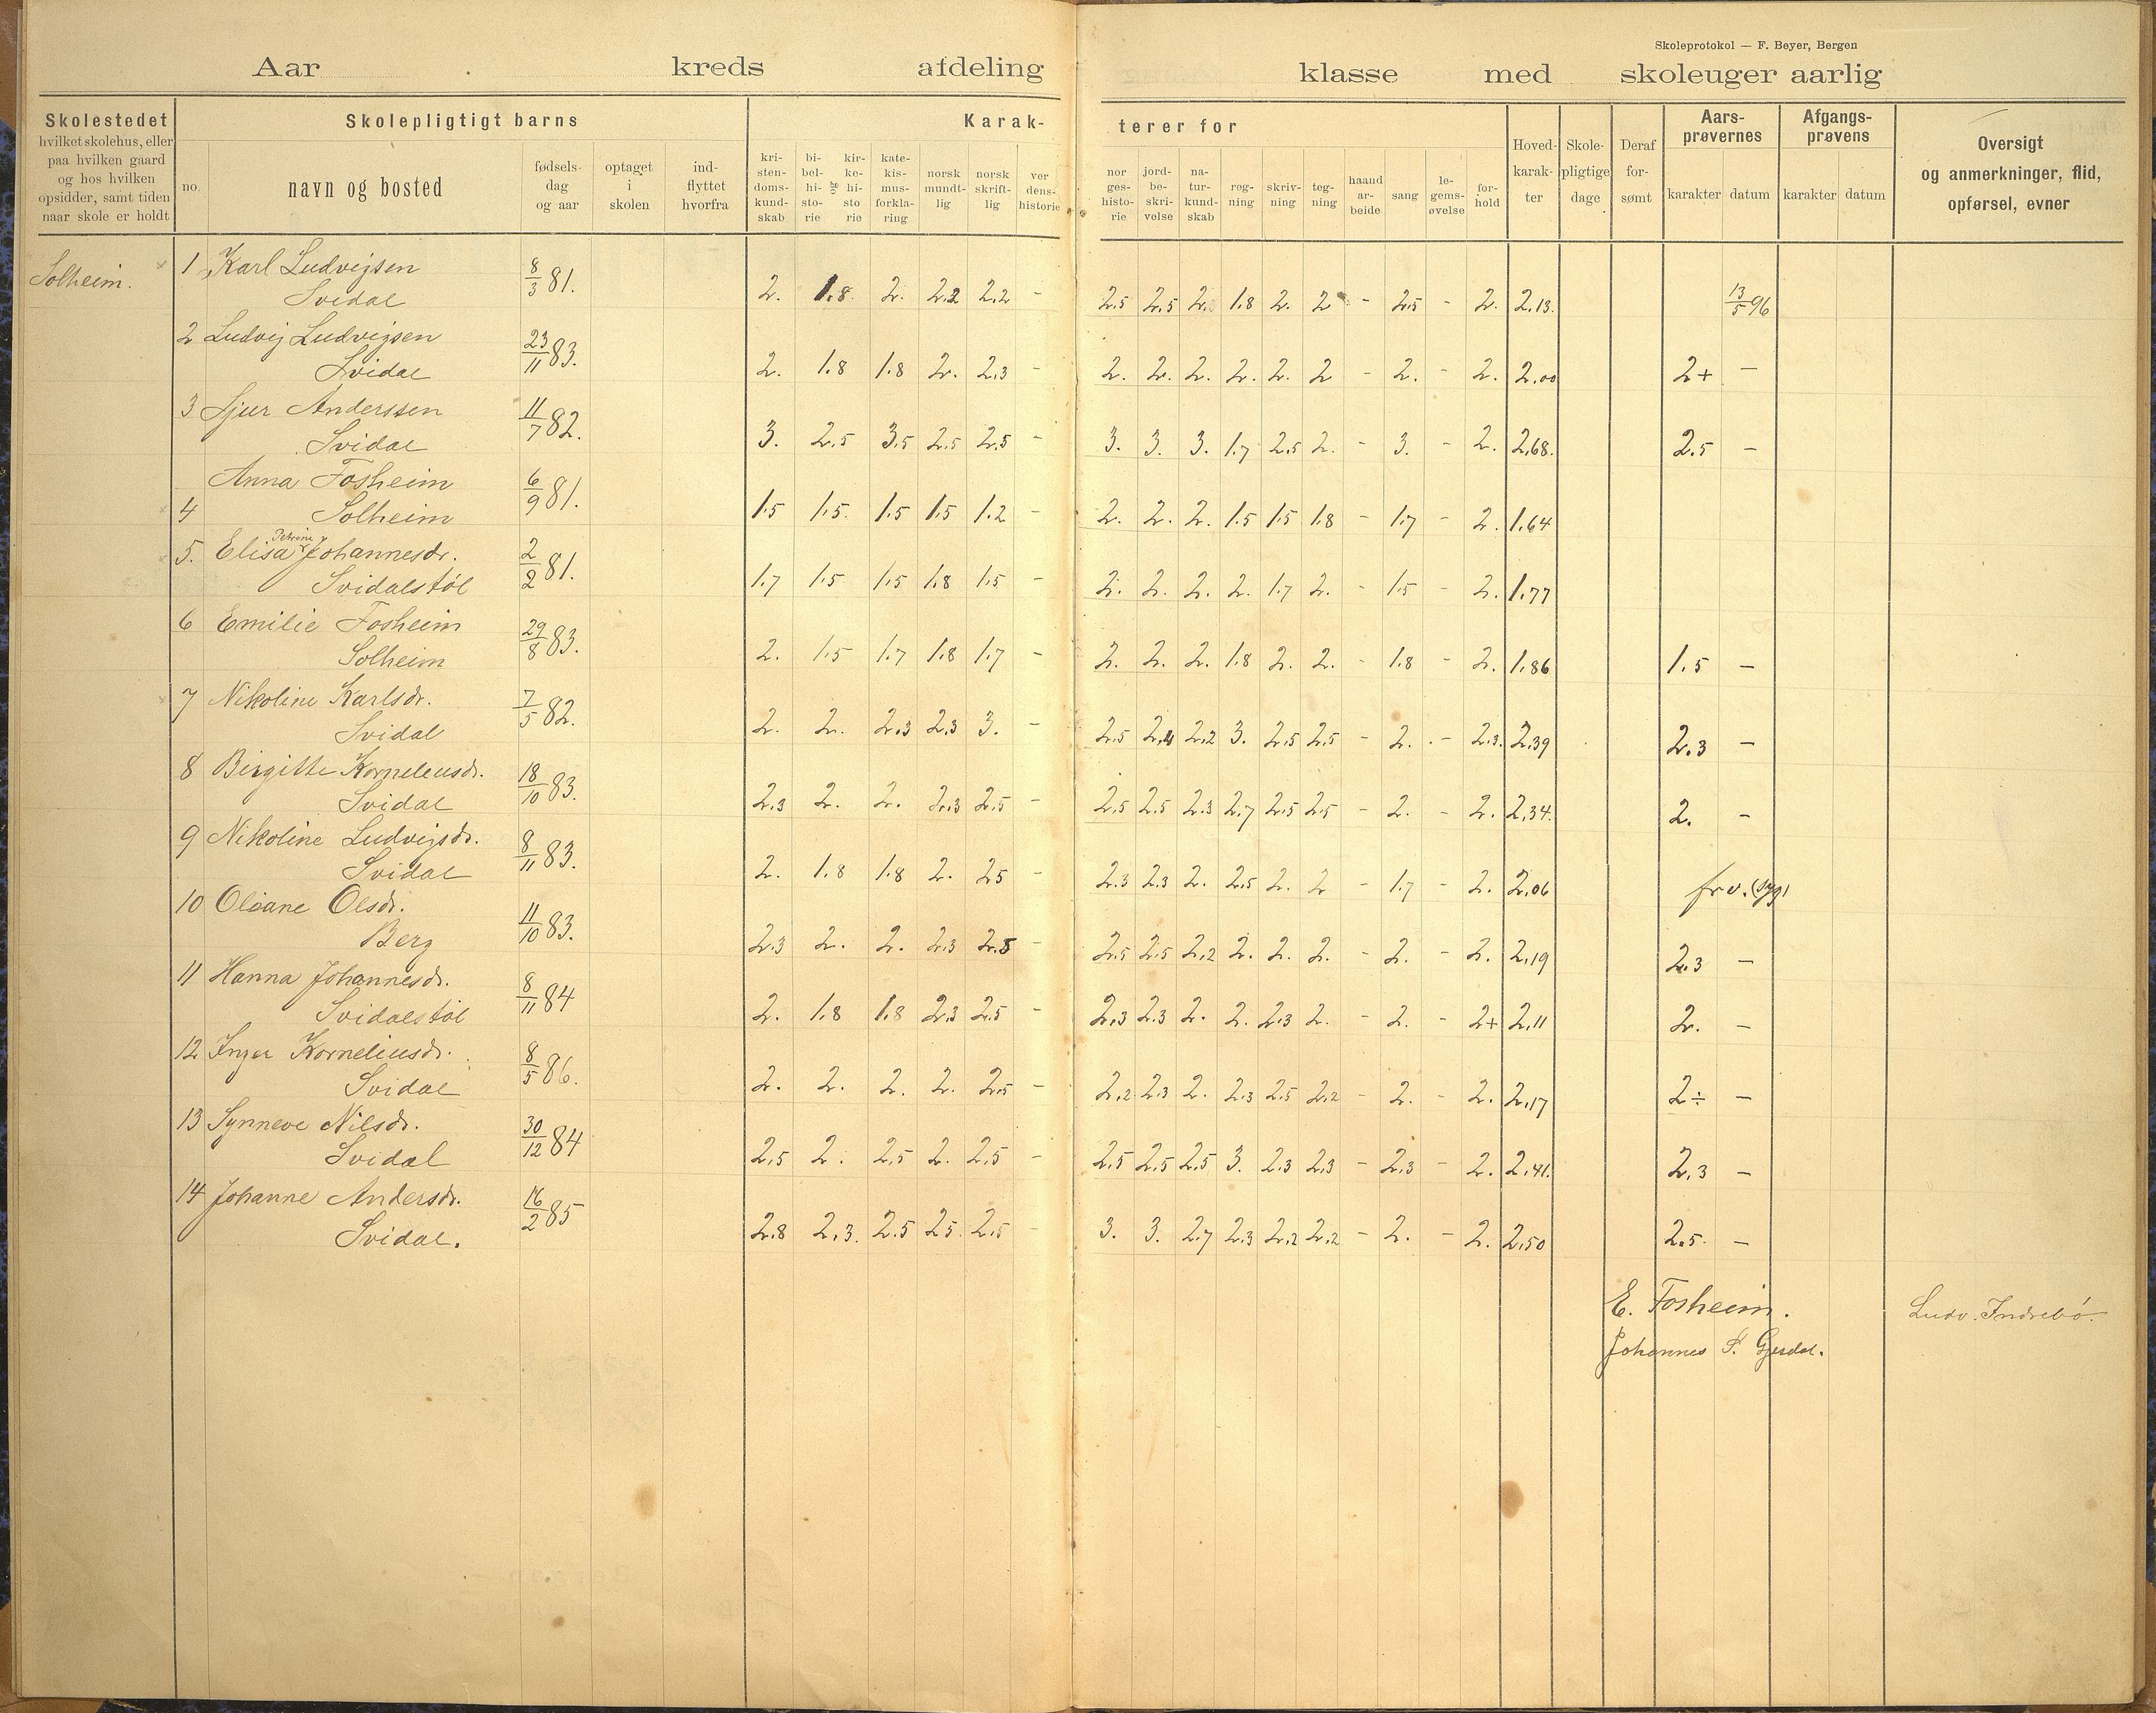 Skoleprotokol — F. Beyer, Bergen
Aar kreds afdeling klasse med skoleuger aarlig
Skolestedet
hvilket skolehus, eller
paa hvilken gaard
og hos hvilken
opsidder, samt tiden
naar skole er holdt
Skolepligtigt barns
no.
navn og bosted
fødsels-
dag
og aar
optaget
i
skolen
ind-
flyttet
hvorfra
Karak-
terer for
kri-
sten-
doms-
kund-
skab
bi-
bel-
hi-
sto-
rie
og
kir-
ke-
hi-
sto
rie
kate-
kis-
mus-
forkla-
ring
norsk
mundt-
lig
norsk
skrift-
lig
ver
dens-
historie
nor
ges-
histo-
rie
jord-
be-
skri-
velse
na-
tur-
kund-
skab
reg-
ning
skriv-
ning
teg-
ning
haand
ar-
beide
sang
le-
gems-
øvelse
for-
hold
Hoved-
karak-
ter
Skole-
pligtige
dage
Deraf
for-
sømt
Aars-
prøvernes
karakter datum
Afgangs-
prøvens
karakter datum
Oversigt
og anmerkninger, flid,
opførsel, evner
Solheim.
1 Karl Ludvigsen 8/3 81.
Svidal 2. 1.8 2. 2.2 2.2 - 2.5 2.5 2. 1.8 2. 2 - 2.5 - 2. 2.13. 13/5 96
2 Ludvig Ludvigsen 23/11 83.
Svidal 2. 1.8 1.8 2. 2.3 - 2. 2. 2. 2. 2. 2 - 2. - 2. 2.00 2+ -
3 Sjur Anderssen 11/7 82.
Svidal 3. 2.5 3.5 2.5 2.5 - 3. 3. 3. 1.7 2.5 2. - 3. - 2. 2.68. 2.5 -
Anna Fosheim 6/9 81.
4 Solheim 1.5 1.5. 1.5 1.5 1.2 - 2. 2. 2. 1.5 1.5 1.8 - 1.7 - 2. 1.64
5. Elisa Petrine Johannesdr. 2/2 81.
Svidalstøl 1.7 1.5 1.5 1.8 1.5 - 2. 2. 2. 2. 1.7 2. - 1.5 - 2. 1.77
6 Emilie Fosheim 29/8 83.
Solheim 2. 1.5 1.7 1.8 1.7 - 2. 2. 2. 1.8 2. 2. - 1.8 - 2. 1.86 1.5 -
7 Nikoline Karlsdr. 7/5 82.
Svidal 2. 2. 2.3 2.3 3. - 2.5 2.4 2.2 3. 2.5 2.5 - 2. - 2.3. 2.39 2.3 -
8 Birgitte Korneleusdr. 18/10 83.
Svidal 2.3 2. 2. 2.3 2.5 - 2.5 2.5 2.3 2.7 2.5 2.5 - 2. - 2. 2.34. 2. -
9 Nikoline Ludvigsdr. 8/11 83.
Svidal 2. 1.8 1.8 2. 2.5 2.3 2.3 2. 2.5 2. 2 - 1.7 - 2. 2.06 frv. (syg)
10 Oliane Olsdr. 11/10 83.
Berg 2.3 2. 2. 2.3 2.5 - 2.5 2.5 2.2 2. 2. 2. - 2. - 2. 2.19 2.3 -
11 Hanna Johannesdr. 8/11 84
Svidalstøl 2. 1.8 1.8 2.3 2.5 - 2.3 2.3 2. 2. 2.3 2. - 2. - 2+ 2.11 2. -
12 Inger Korneliusdr. 8/5 86.
Svidal 2. 2. 2. 2. 2.5 - 2.2 2.3 2. 2.3 2.5 2.2 - 2. - 2. 2.17 2÷ -
13 Synneve Nilsdr. 30/12 84
Svidal 2.5 2. 2.5 2. 2.5 - 2.5 2.5 2.5 3. 2.3 2.3 - 2.3 - 2. 2.41. 2.3 -
14 Johanne Andersdr. 16/2 85
Svidal. 2.8 2.3. 2.5 2.5. 2.5 - 3. 3. 2.7 2.3 2.2 2.2 - 2. - 2. 2.50 2.5. -
E. Fosheim. Ludv. Indrebö.
Johannes S. Gjesdal.